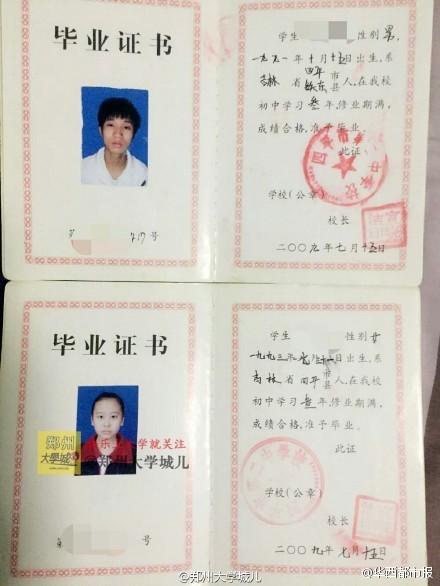 毕业证书
号
学生 性别 男,
一九九一年十月十五日出生,系
吉林省四平市铁东县人,在我校
初中学习叁年,修业期满,
成绩合格,准予毕业。
此证
学校(公章)
校长
二〇〇九年七月十五日
毕业证书
郑州
大学城
学就关注
@郑州大学城儿
第 号
学生 性别 女
一九九三年 日出生,系
吉林省四平市县人,在我校
初中学习叁年,修业期满,
成绩合格,准予毕业。
此证
学校(公章)
校长
二〇〇九年七月十五日
@郑州大学城儿
@华西都市报